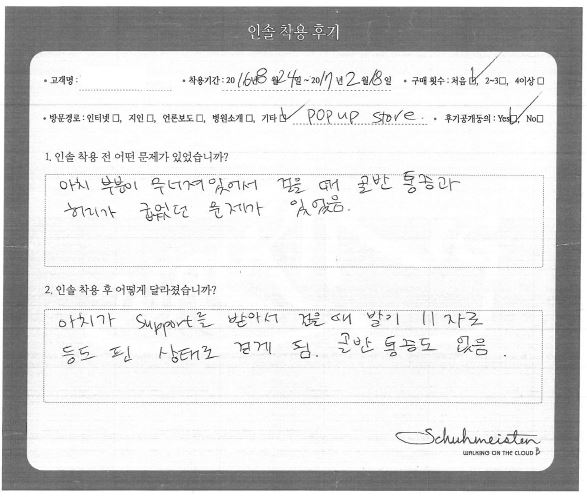 인솔 착용 후기
• 고객명 : • 착용기간 : 20 16년 8 월 24일 ~ 20 17 년 2 월 18 일 • 구매 횟수 : 처음 ☑, 2~3□, 4이상 □
• 방문경로 : 인터넷 □, 지인 □, 언론보도 □, 병원소개 □, 기타 ☑ POP up store. • 후기공개동의 : Yes☑, No□
1. 인솔 착용 전 어떤 문제가 있었습니까?
아치 부분이 무너져있어서 걸을 때 골반 통증과
허리가 굽었던 문제가 있었음.
2. 인솔 착용 후 어떻게 달라졌습니까?
아치가 Support를 받아서 걸을 때 발이 11자로
등도 핀 상태로 걷게 됨. 골반 통증도 없음.
Schuhmeister
WALKING ON THE CLOUD B